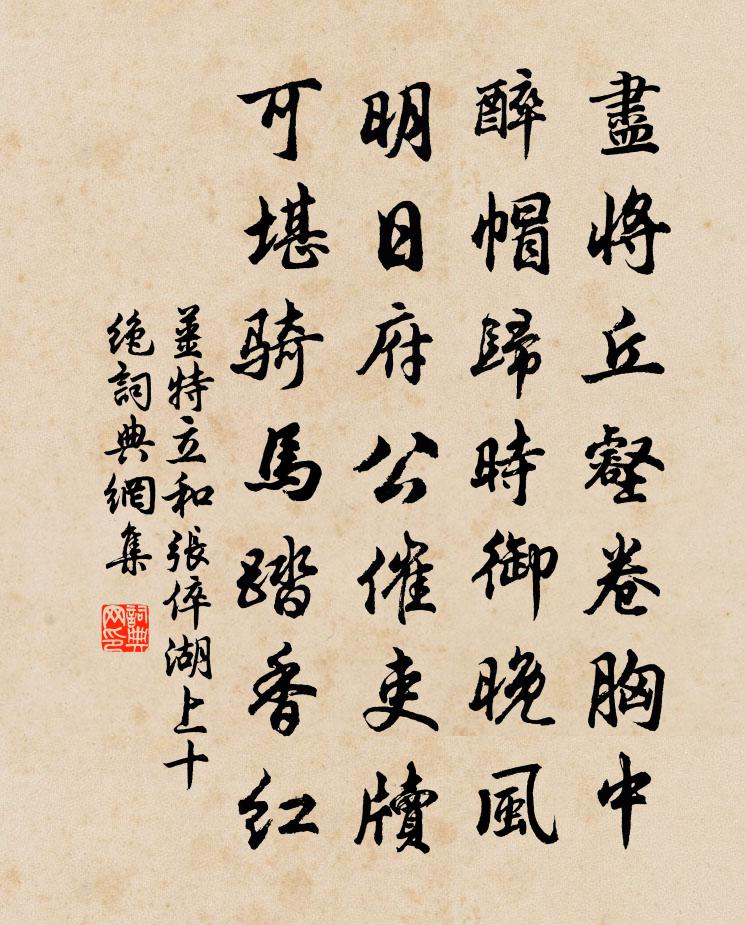 盡將丘壑卷胸中
醉帽歸時御晚風
明日府公催吏牘
可堪騎馬踏香紅
姜特立和張倅湖上十
絶詞典網集
詞典
网印